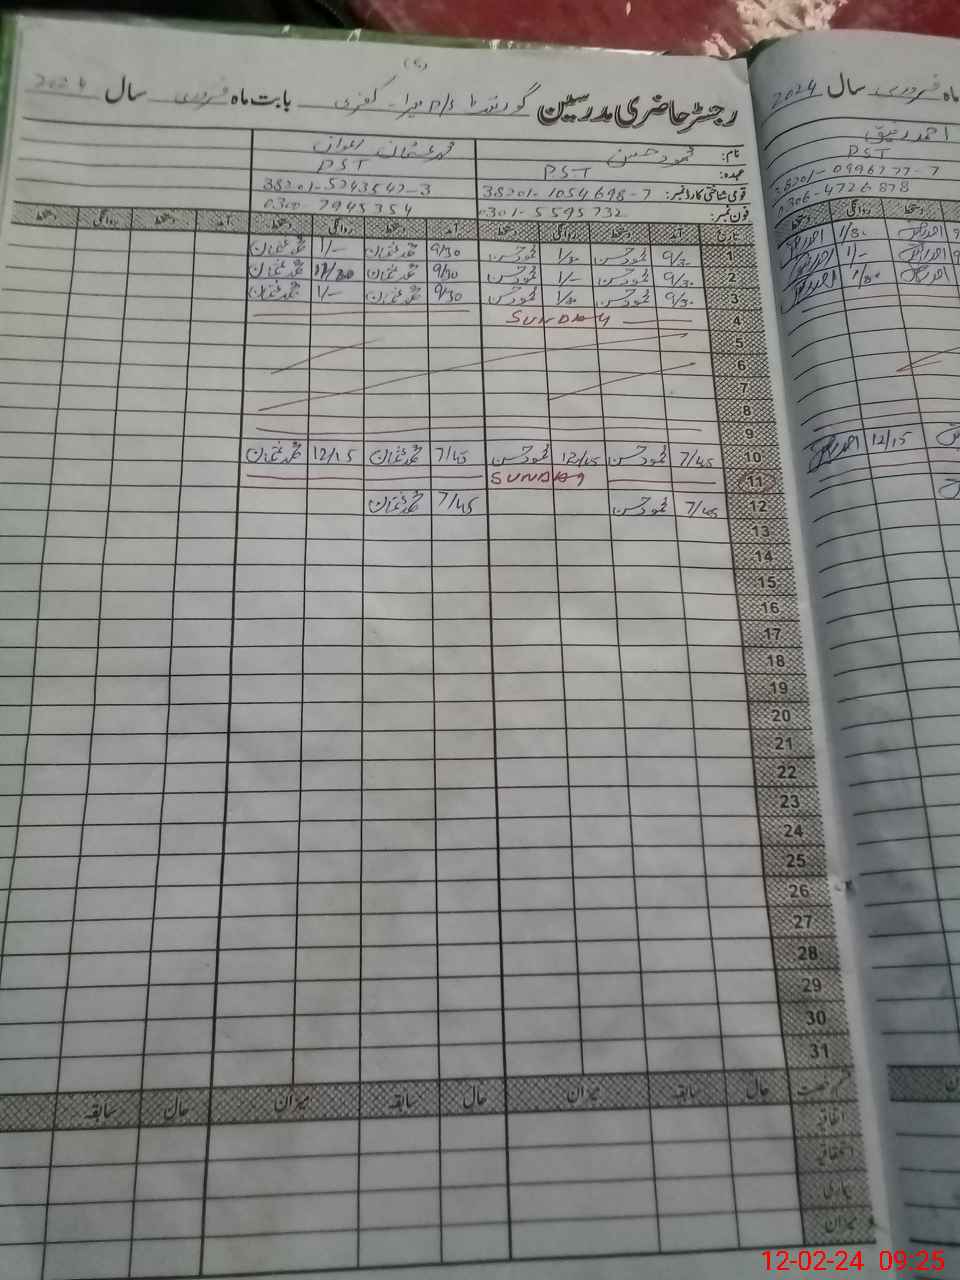 (5)
رجسٹر حاضری مدرسین گورنمنٹ P/S میرا- کفری بابت ماہ فروری سال 2024
نام: محمود حسن محمد عثمان اعوان
عہدہ: PST PST
قومی شناختی کارڈ نمبر: 38201-1054698-7 38201-5243547-3
فون نمبر: 0301-5595732 0300-7945354
تاریخ آمد دستخط روانگی دستخط آمد دستخط روانگی دستخط آمد دستخط روانگی دستخط
1 9/30 محمود حسن 1/30 محمود حسن 9/30 محمد عثمان 1/- محمد عثمان
2 9/30 محمود حسن 1/- محمود حسن 9/30 محمد عثمان محمد عثمان
3 9/30 محمود حسن 1/30 محمود حسن 9/30 محمد عثمان 1/- محمد عثمان
4 SUNDAY
5
6
7
8
9
10 7/45 محمود حسن 12/45 محمود حسن 7/45 محمد عثمان 12/15 محمد عثمان
11 SUNDAY
12 7/45 محمود حسن 7/45 محمد عثمان
13
14
15
16
17
18
19
20
21
22
23
24
25
26
27
28
29
30
31
قسم رخصت حال سابقہ میزان حال سابقہ میزان حال سابقہ
اتفاقیہ
استحقاقیہ
بیماری
میزان
ماہ فروری سال 2024
احمد رفیق
PST
38201-0996777-7
0306-4726878
روانگی دستخط
1/30
1/-
1/30
12/15
12-02-24 09:25